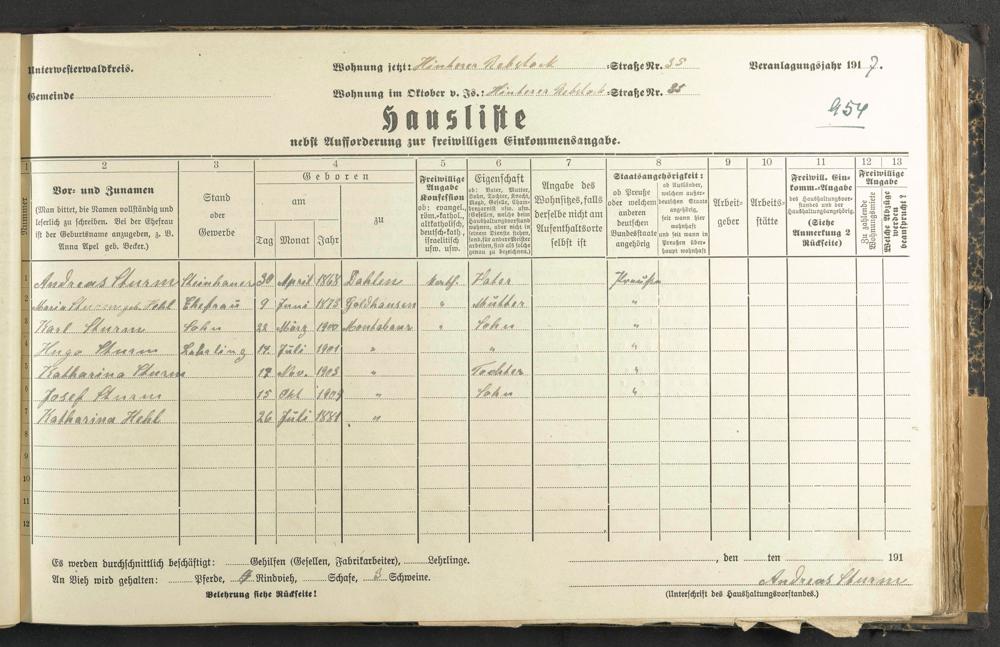 Unterwesterwaldkreis.
Wohnung jetzt: Hinterer Rebstock Straße Nr. 35
Veranlagungsjahr 1917.
Gemeinde
Wohnung im Oktober v. Js.: Hinterer Rebstock Straße Nr. 35
954
Hausliste
nebst Aufforderung zur freiwilligen Einkommensangabe.
1 2 3 4 5 6 7 8 9 10 11 12 13
Nummer
Vor- und Zunamen
(Man bittet, die Namen vollständig und
leserlich zu schreiben. Bei der Ehefrau
ist der Geburtsname anzugeben, z. B.
Anna Apel geb. Becker.)
Stand
oder
Gewerbe
Geboren
am
Tag Monat Jahr
zu
Freiwillige
Angabe
Konfession
ob: evangel.,
röm.-kathol.,
altkatholisch,
deutsch-kath.,
israelitisch
usw. usw.
Eigenschaft
ob: Vater, Mutter,
Sohn, Tochter, Knecht,
Magd, Geselle, Cham-
bregarnist usw. usw.
Angabe des
Wohnsitzes, falls
derselbe nicht am
Aufenthaltsorte
selbst ist
Staatsangehörigkeit:
ob Preuße
oder welchem
anderen
deutschen
Bundesstaate
angehörig
ob Ausländer,
welchem außer-
deutschen Staate
angehörig,
seit wann im
Preußen über-
haupt wohnhaft
Arbeit-
geber
Arbeits-
stätte
Freiwill. Ein-
komm.-Angabe
des Haushaltungsvor-
standes und der
Haushaltungsangehörig.
(Siehe
Anmerkung 2
Rückseite)
Freiwillige
Angabe
Zu zahlende
Wohnungsmiete
Welche Abzüge
werden
beansprucht?
1 Andreas Sturm Steinhauer 30 April 1868 Dahlen kath. Vater Preußen
2 Maria Sturm geb. Hehl Ehefrau 9 Juni 1878 Goldhausen " Mutter "
3 Karl Sturm Sohn 22 März 1900 Montabaur " Sohn "
4 Hugo Sturm Lehrling 14 Juli 1901 " " "
5 Katharina Sturm 17 Nov. 1903 " Tochter "
6 Josef Sturm 15 Okt 1909 " Sohn "
7 Katharina Hehl 26 Juli 1881 "
8
9
10
11
12
Es werden durchschnittlich beschäftigt: Gehilfen (Gesellen, Fabrikarbeiter), Lehrlinge.
, den ten 191
An Vieh wird gehalten: Pferde, Rindvieh, Schafe, 3 Schweine.
Andreas Sturm
Belehrung siehe Rückseite!
(Unterschrift des Haushaltungsvorstandes.)